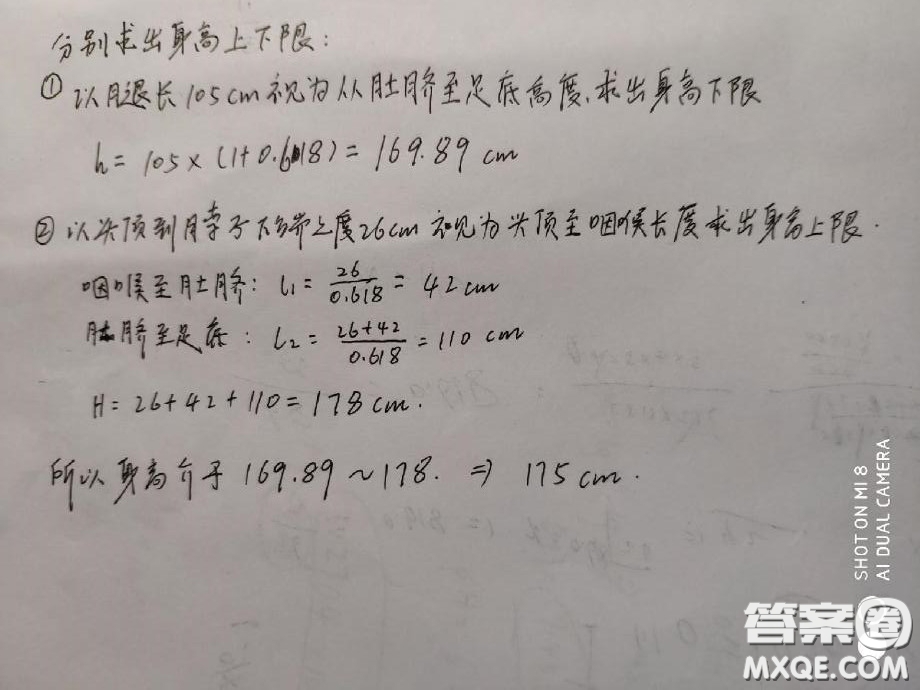 分别求出身高上下限：
① 以腿长105cm视为从肚脐至足底高度，求出身高下限
h = 105 × (1+0.618) = 169.89 cm
② 以头顶到脖子下端之度26cm视为头顶至咽喉长度求出身高上限.
咽喉至肚脐: l₁ = 26/0.618 = 42cm
肚脐至足底: l₂ = (26+42)/0.618 = 110 cm
H = 26+42+110 = 178cm.
所以身高介于 169.89 ~ 178. ⇒ 175cm.
SHOT ON MI 8
AI DUAL CAMERA
答案圈
MXQE.COM